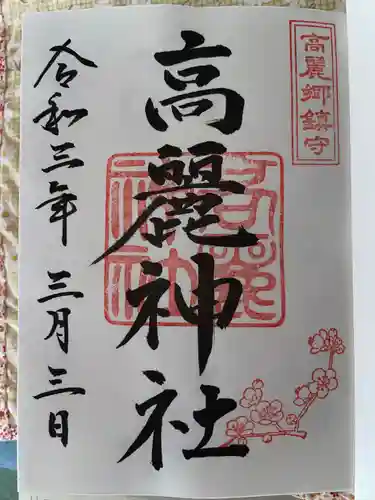 高麗郷鎮守
高麗神社
令和三年 三月三日
高麗神社